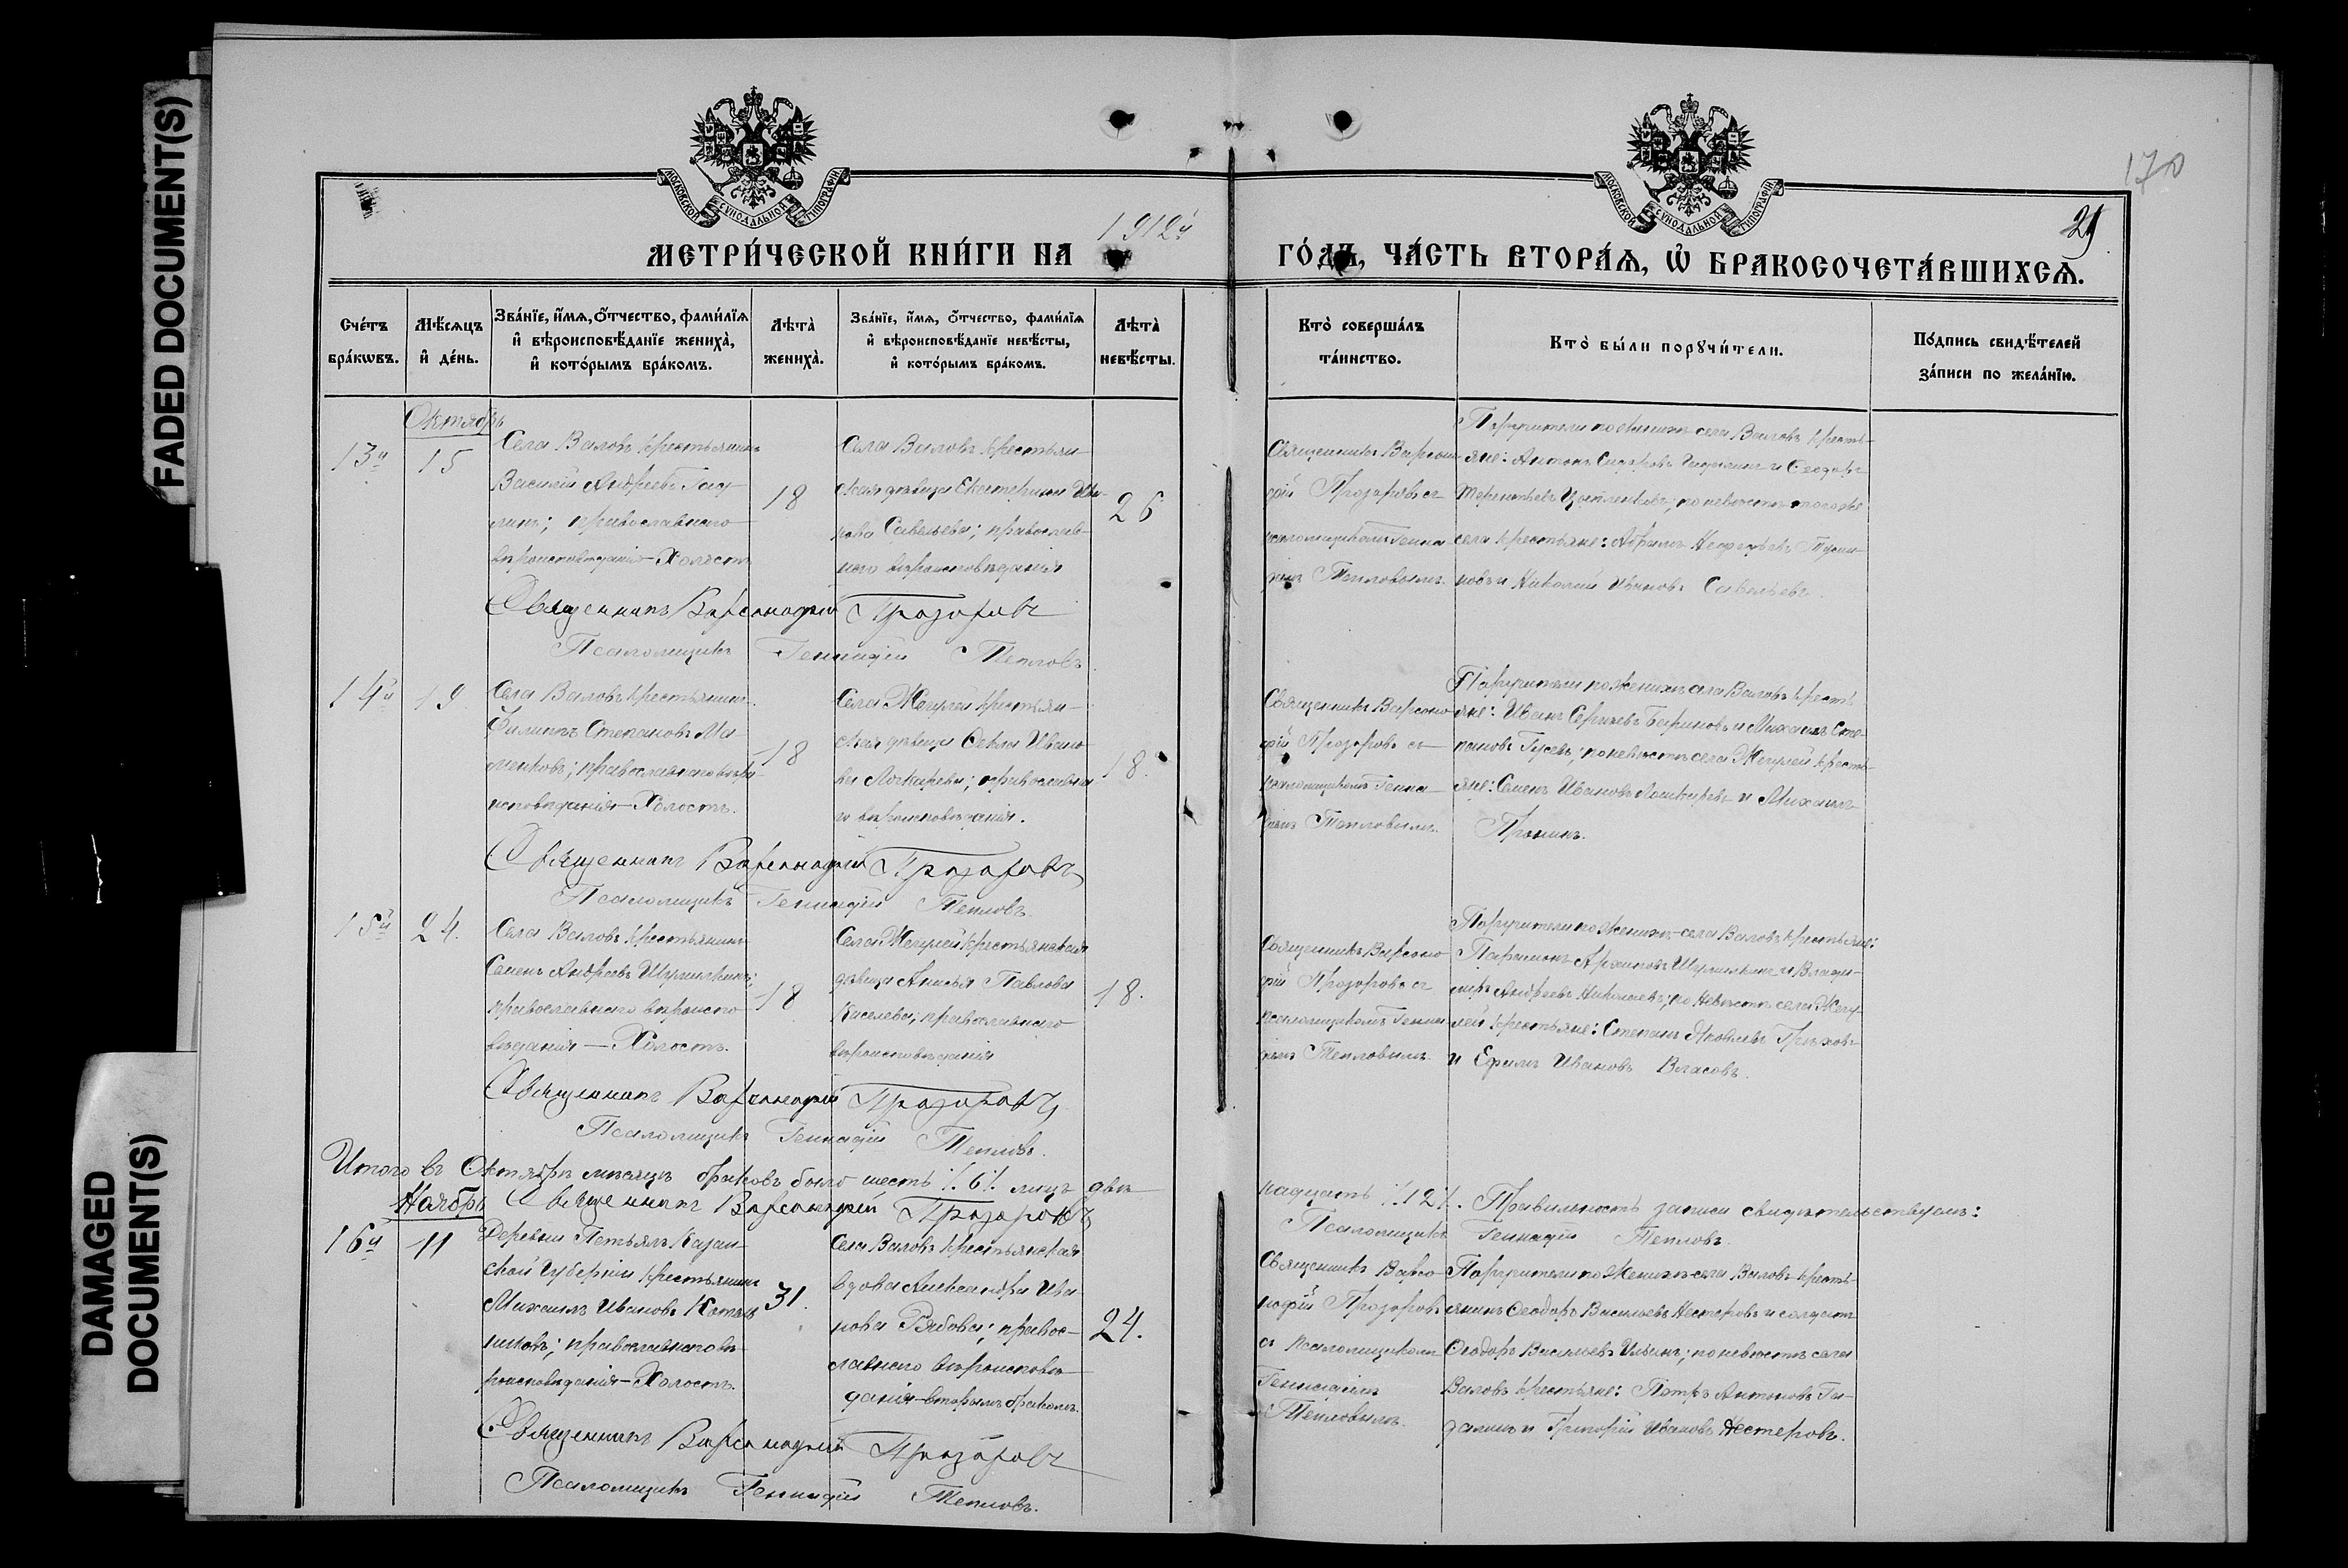 FADED DOCUMENT(S)
DAMAGED
DOCUMENT(S)
170
29
МОСКОВСКОЙ СѴНОДАЛЬНОЙ ТИПОГРАФІИ
МОСКОВСКОЙ СѴНОДАЛЬНОЙ ТИПОГРАФІИ
МЕТРИ́ЧЕСКОЙ КНИ́ГИ НА 1912й ГО́ДЪ, ЧА́СТЬ ВТОРА́Ѧ, Ѡ҆ БРАКОСОЧЕТА́ВШИХСѦ.
Сче́тъ
бра́кѡвъ.
Мѣ́сѧцъ
и҆ де́нь.
Зва́нїе, и҆́мѧ, ѻ҆́тчество, фами́лїѧ
и҆ вѣроисповѣ́данїе жениха̀,
и҆ кото́рымъ бра́комъ.
Лѣта̀
жениха̀.
Зва́нїе, и҆́мѧ, ѻ҆́тчество, фами́лїѧ
и҆ вѣроисповѣ́данїе невѣ́сты,
и҆ кото́рымъ бра́комъ.
Лѣта̀
невѣ́сты.
Кто̀ соверша́лъ
та́инство.
Кто̀ бы́ли порꙋчи́тели.
По́дпись свидѣ́телей
за́писи по жела́нїю.
Октябрь
13й
15
Села Валовъ крестьянинъ
Василій Андреевъ Гад-
алинъ; православнаго
вѣроисповѣданія—Холостъ
18
Села Валовъ крестьян-
ская дѣвица Екатерина Ива-
нова Савельева; православ-
наго вѣроисповѣданія
26
Священникъ Варсоно-
фій Прозоровъ съ
псаломщикомъ Генна-
діемъ Тепловымъ.
Поручители по женихѣ села Валовъ кресть-
яне: Антонъ Сидоровъ Гадалинъ и Ѳеодоръ
Терентьевъ; по невѣстѣ того же
села крестьяне: Абрамъ
новъ и Николай Ивановъ Савельевъ.
Священникъ Варсонофій Прозоровъ
Псаломщикъ Геннадій Тепловъ.
14й
19
Села Валовъ крестьянинъ
Филиппъ Степановъ Ма-
менковъ; православнаго вѣро-
исповѣданія—Холостъ.
18
Села Жегулей крестьян-
ская дѣвица Ѳекла Ивано-
ва Лошкарева; православна-
го вѣроисповѣданія.
18
Священникъ Варсоно-
фій Прозоровъ съ
псаломщикомъ Генна-
діемъ Тепловымъ.
Поручители по женихѣ села Валовъ кресть-
яне: Иванъ Сергѣевъ Бариновъ и Михаилъ Сте-
пановъ Гусевъ; по невѣстѣ села Жегулей кресть-
яне: Семенъ Ивановъ Лошкаревъ и Михаилъ
Пронинъ.
Священникъ Варсонофій Прозоровъ
Псаломщикъ Геннадій Тепловъ.
15й
24.
Села Валовъ крестьянинъ
Семенъ Андреевъ Шурмелкинъ;
православнаго вѣроиспо-
вѣданія—Холостъ.
18
Села Жегулей крестьянская
дѣвица Анисья Павлова
Киселева; православнаго
вѣроисповѣданія
18.
Священникъ Варсоно-
фій Прозоровъ съ
псаломщикомъ Генна-
діемъ Тепловымъ.
Поручители по женихѣ села Валовъ крестьяне:
Парамонъ Архиповъ Шурмелкинъ и Влади-
миръ Андреевъ Николаевъ; по невѣстѣ села Жегу-
лей крестьяне: Степанъ Яковлевъ Грѣховъ
и Ефимъ Ивановъ Власовъ.
Священникъ Варсонофій Прозоровъ
Псаломщикъ Геннадій Тепловъ.
Итого въ Октябрѣ мѣсяцѣ браковъ было шесть ·/. 6 ·/. лицъ двѣ-
надцать ·/. 12 ·/. Правильность записи свидѣтельствуемъ:
Священникъ Варсонофій Прозоровъ
Псаломщикъ Геннадій Тепловъ.
Ноябрь
16й
11
Деревни Петьялъ Казан-
ской Губерніи крестьянинъ
Михаилъ Ивановъ Котель-
никовъ; православнаго вѣ-
роисповѣданія—Холостъ.
31.
Села Валовъ крестьянская
вдова Александра Ива-
нова Рябова; правос-
лавнаго вѣроисповѣ-
данія—вторымъ бракомъ.
24.
Священникъ Варсо-
нофій Прозоровъ
съ псаломщикомъ
Геннадіемъ
Тепловымъ.
Поручители по женихѣ села Валовъ кресть-
янинъ Ѳеодоръ Васильевъ Нестеровъ и солдатъ
Ѳеодоръ Васильевъ Ильинъ; по невѣстѣ села
Валовъ крестьяне: Петръ Антоновъ Га-
далинъ и Григорій Ивановъ Нестеровъ.
Священникъ Варсонофій Прозоровъ
Псаломщикъ Геннадій Тепловъ.